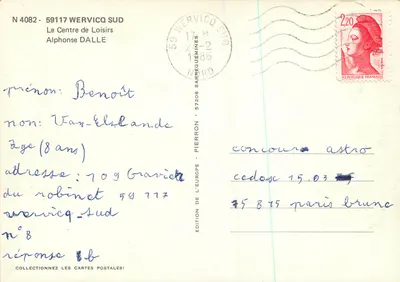 N 4082 - 59117 WERVICQ SUD
Le Centre de Loisirs
Alphonse DALLE
59 WERVICQ SUD
NORD
2,20
prénom: Benoît
nom: Van-Elslande
âge (8 ans)
adresse: 109 Gravier
du robinet 59 117
wervicq-sud
n°8
réponse 1b
COLLECTIONNEZ LES CARTES POSTALES!
EDITION DE L'EUROPE - PIERRON - 57206 SARREGUEMINES
concours astro
cedex 15.03
75 875 paris brune